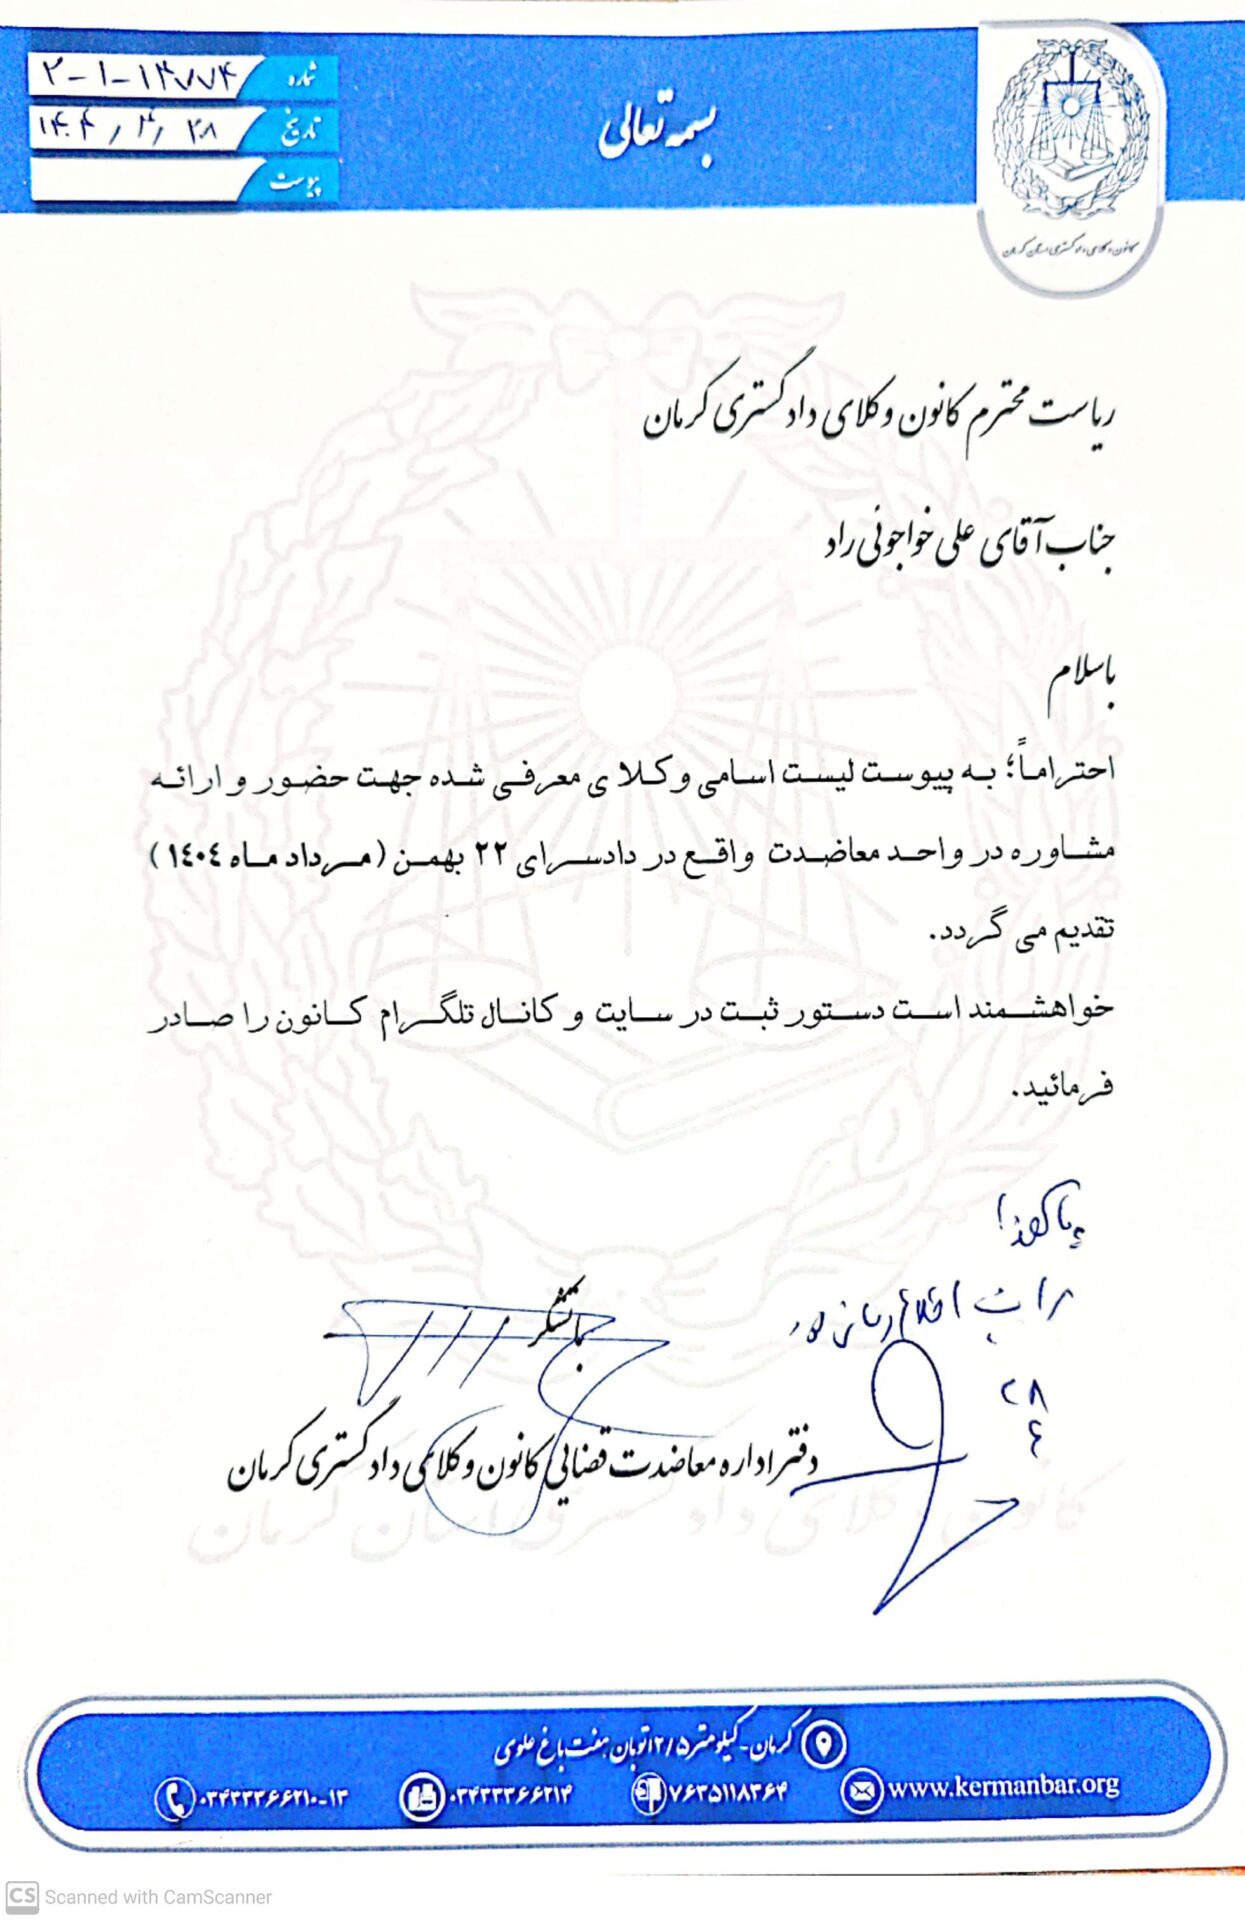 بسمه تعالی
شماره ۲-۱-۱۳۷۷۴
تاریخ ۱۴۰۴/۴/۲۸
پیوست
کانون وکلای دادگستری استان کرمان
ریاست محترم کانون وکلای دادگستری کرمان
جناب آقای علی خواجوئی راد
باسلام
احتراماً؛ به پیوست لیست اسامی وکلا ی معرفی شده جهت حضور و ارائه
مشاوره در واحد معاضدت واقع در دادسرای ۲۲ بهمن (مرداد ماه ۱٤۰٤)
تقدیم می گردد.
خواهشمند است دستور ثبت در سایت و کانال تلگرام کانون را صادر
فرمائید.
اطلاع رسانی
۲۸
٤
باتشکر
دفتر اداره معاضدت قضایی کانون وکلای دادگستری کرمان
کانون وکلای دادگستری استان کرمان
کرمان-کیلومتر ۱۲/۵ اتوبان هفت باغ علوی
www.kermanbar.org
۷۶۳۵۱۱۸۳۶۴
۰۳۴۳۳۳۶۶۲۱۴
۰۳۴۳۳۳۶۶۲۱۰-۱۳
CS Scanned with CamScanner